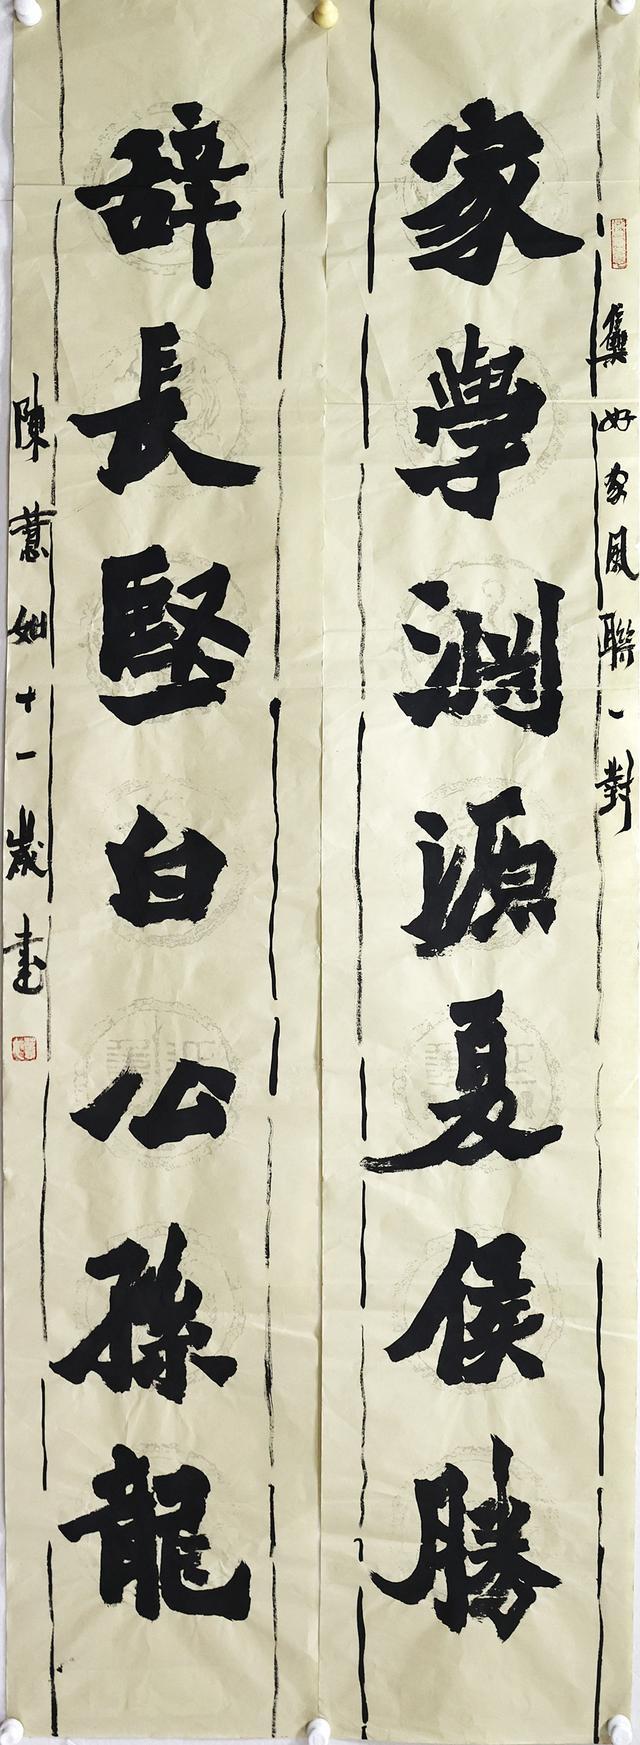 集好家風聯一對
家學淵源夏侯勝
辭長堅白公孫龍
陳薏如十一歲書